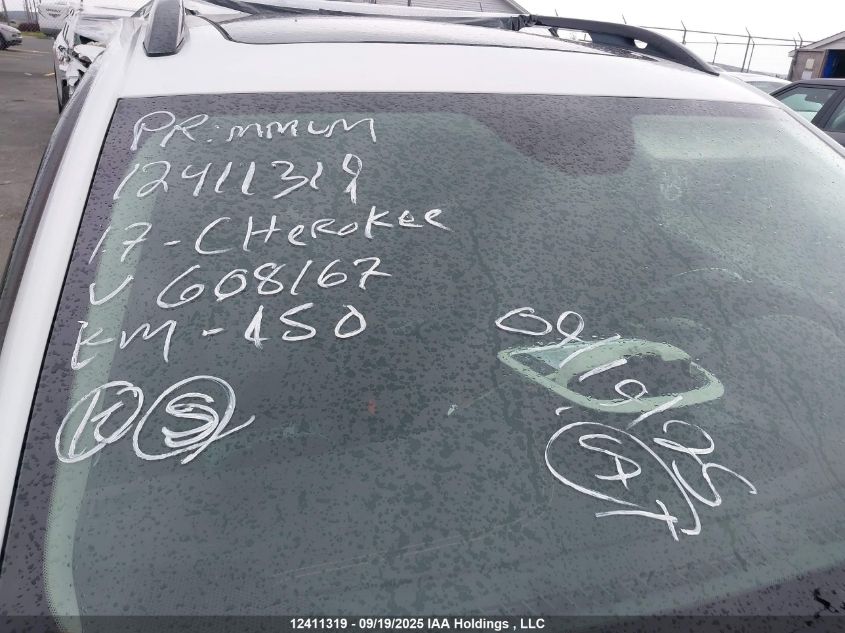 PR:MMUM
12411319
17-CHEROKEE
V 608167
KM-150
K S
09/19/25
12411319 - 09/19/2025 IAA Holdings , LLC